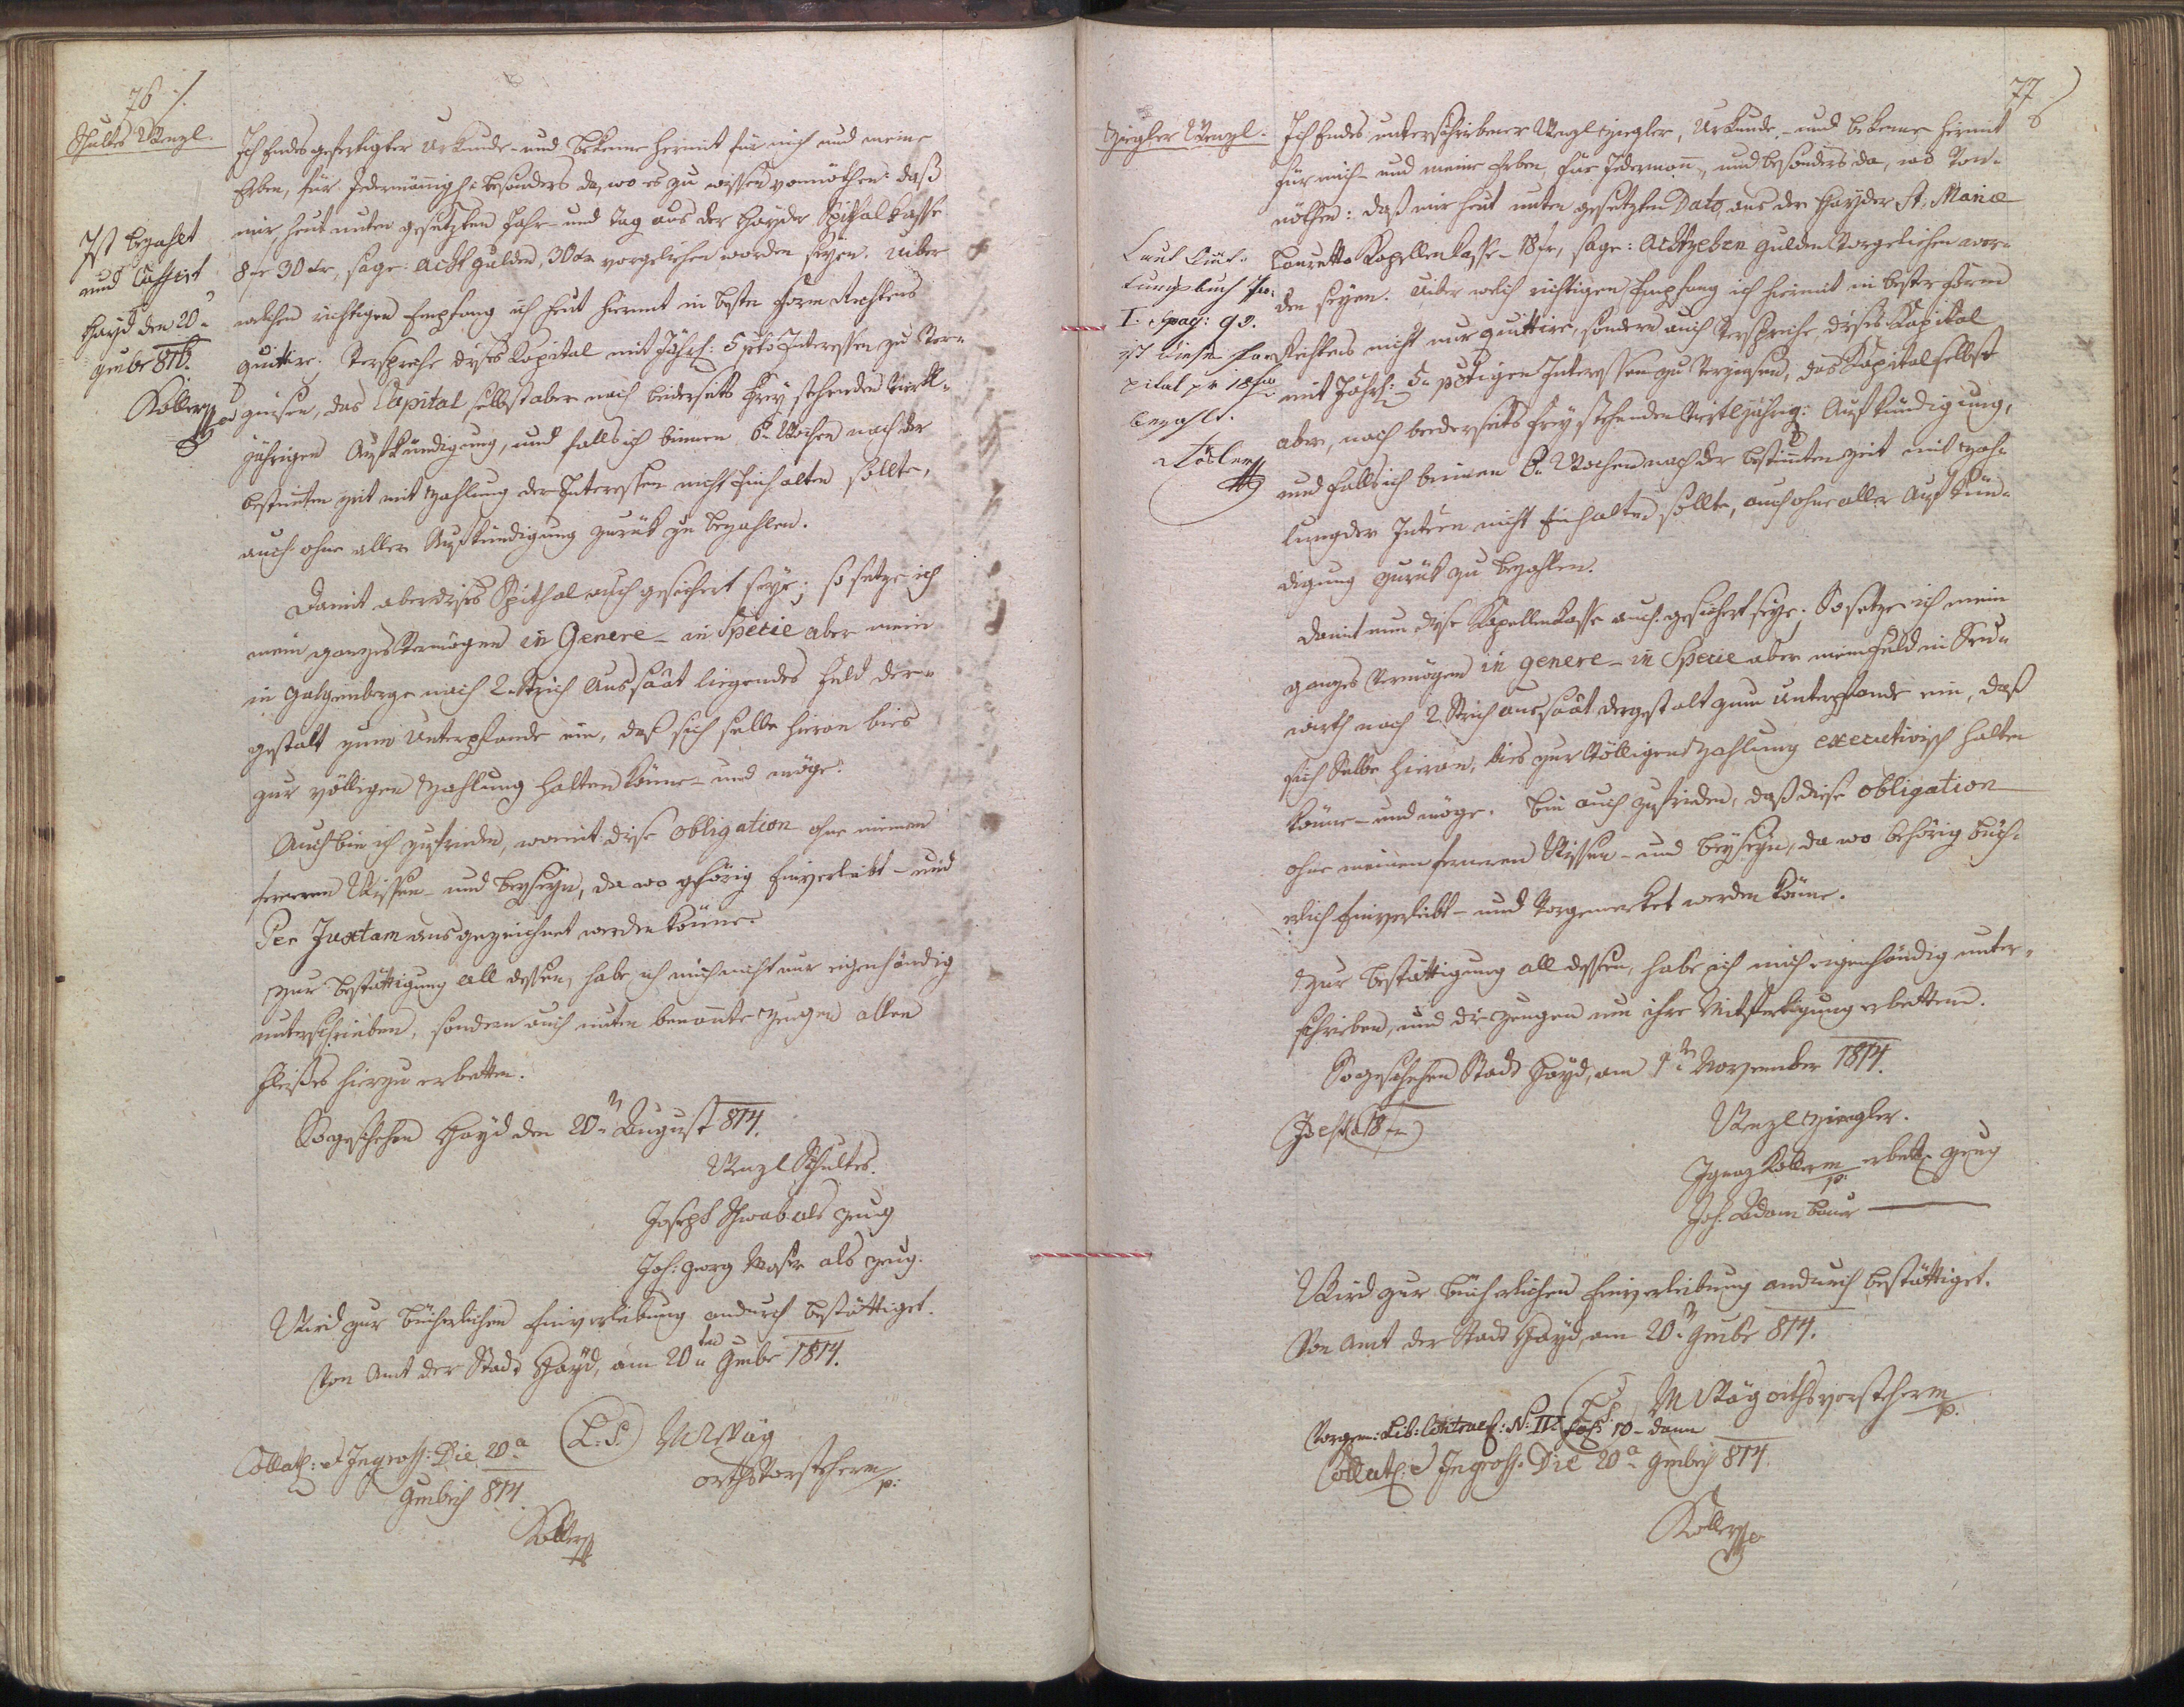 76 /.
Schultes Wenzl.
Ich Endes gefertigter Urkunde- und bekenne hiermit für mich und meine
Erben, für Jedermänniglich besonders da, wo es zu wissen vonnöthen: daß
mir, heut unten gesetzten Jahr- und Tag aus der Hayder Spithal kasse
8 fr 30 xr, sage: Acht Gulden, 30 xr vorgeliehen worden seyen. Uiber
welchen richtigen Empfang ich heut hiermit in bester Form Rechtens
quittire; Verspreche dises Kapital mit Jährl: 5 pcto Interessen zu Ver-
zinsen, das Capital selbst aber nach beiderseits frey stehenden Viertl-
jährigen Aufkündigung, und falls ich binnen 6 Wochen nach der
bestimten Zeit mit Zahlung der Interessen nicht Einhalten sollte,
auch ohne aller Aufkündigung zurük zu bezahlen.
Ist bezahlt
und Cassirt
Hayd den 20
817.
Koller
Damit aber dises Spithal auch gesichert seye; so setze ich
mein ganzes Vermögen in Genere - in Specie aber mein
in Galgenberge nach 2 Strich Aussaat liegendes Feld der-
gestalt zum Unterpfande ein, daß sich selbe hieran bies
zur völligen Zahlung halten könne- und möge.
Auch bin ich zufrieden, womit dise Obligation ohne meinen
ferneren Wissen- und beyseyn, da wo gehörig Einverleibt- und
Per Juxtam ausgezeichnet werden könne.
Zur bestättigung all dessen, habe ich mich nicht nur eigenhändig
unterschrieben, sondern auch unten benannte Zeugen allen
Fleißes hierzu erbetten.
So geschehen Hayd den 20n August 814.
Wenzl Schultes.
Joseph Schwab als Zeug
Joh: Georg Moser als Zeug.
Wird zur bücherlichen Einverleibung andurch bestättiget.
Von Amt der Stadt Hayd, am 20ten 1814.
(L: S:)
Collat: et Ingross: Die 20a
814.
Orthsvorsteher mp:
Koller
77
Ziegler Wenzl.
Ich Endes unterschriebener Wenzl Ziegler, Urkunde- und bekenne hiermit
für mich- und meine Erben, für Jedermann, und besonders da, wo Von-
nöthen: daß mir heut unten gesetzten Dato, aus der Hayder St: Mariae
Lauretta Kapellen Kasse - 18 fr, sage: Achtzehen Gulden Vorgeliehen wor-
den seyen. Uiber welch richtigen Empfang ich hiermit in bester Form
Rechtens nicht nur quittire, sondern auch Verspreche, dises Kapital
mit Jährl: 5 pctigen Interessen zu Verzinsen, das Kapital selbst
aber, nach beederseits frey stehenden Viertljährig: Aufkündigung,
und falls ich binnen 6 Wochen nach der bestimten Zeit mit Zah-
lung der Intessen nicht Einhalten sollte, auch ohne aller Aufkün-
digung zurük zu bezahlen.
Laut Quit-
tungsbuch
I. pag: 92.
ist dieses Ka-
pital pr 18 fr
bezahlt.
Koller
Damit nun dise Kapellen Kasse auch gesichert seye; So setze ich mein
ganzes Vermögen in genere - in Specie aber mein Feld in
nach 2 Strich Aussaat dergestalt zum Unterpfande ein, daß
sich Selbe hieran, bies zur Völligen Zahlung executivisch halten
könne- und möge. bin auch zufrieden, daß diese Obligation
ohne meinen ferneren Wissen- und beyseyn, da wo behörig büch-
erlich Einverleibt- und Vorgemerket werden könne.
Zur bestättigung all dessen, habe ich mich eigenhändig unter-
schrieben, und die Zeugen um ihre Mitfertigung erbetten.
So geschehen Stadt Hayd, am 1n November 1814.
(Id est 18 fr)
Wenzl Ziegler.
Ignaz Koller mp: erbett Zeug
Joh: Adam Baur
Wird zur bücherlichen Einverleibung andurch bestättiget.
Von Amt der Stadt Hayd, am 20n 814.
(L: S:)
Orthsvorsteher mp.
Vorgem: Lib: Contract: N: III Fol: 10 - dann
Collat: et Ingross: Die 20a 814.
Koller